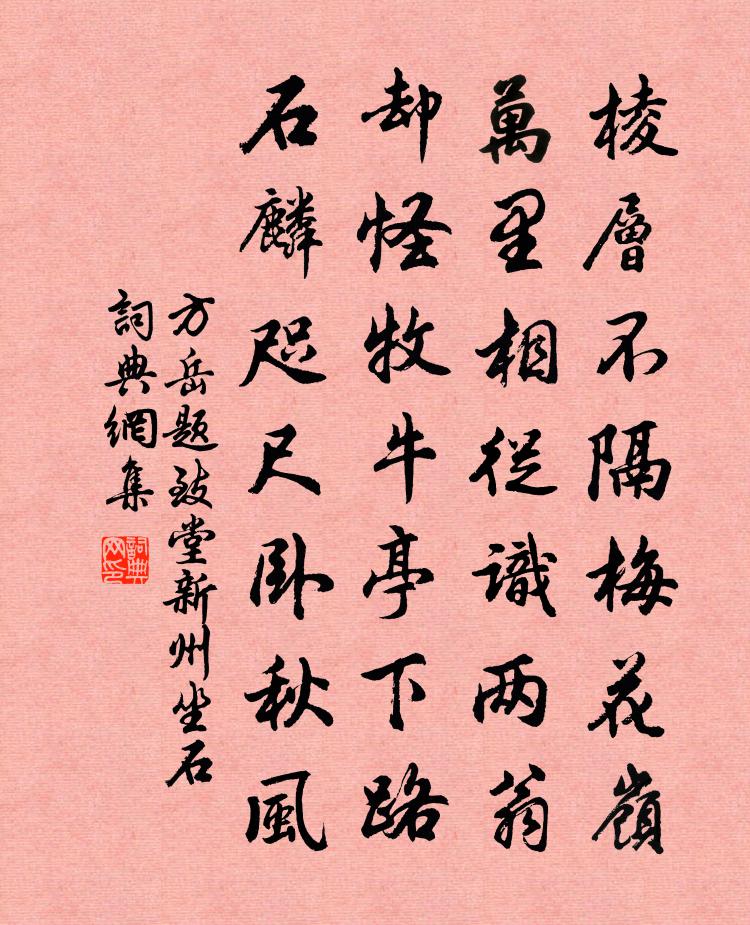 棱層不隔梅花嶺
萬里相從識两翁
却怪牧牛亭下路
石麟咫尺卧秋風
方岳题致堂新州坐石
詞典網集
詞典网印